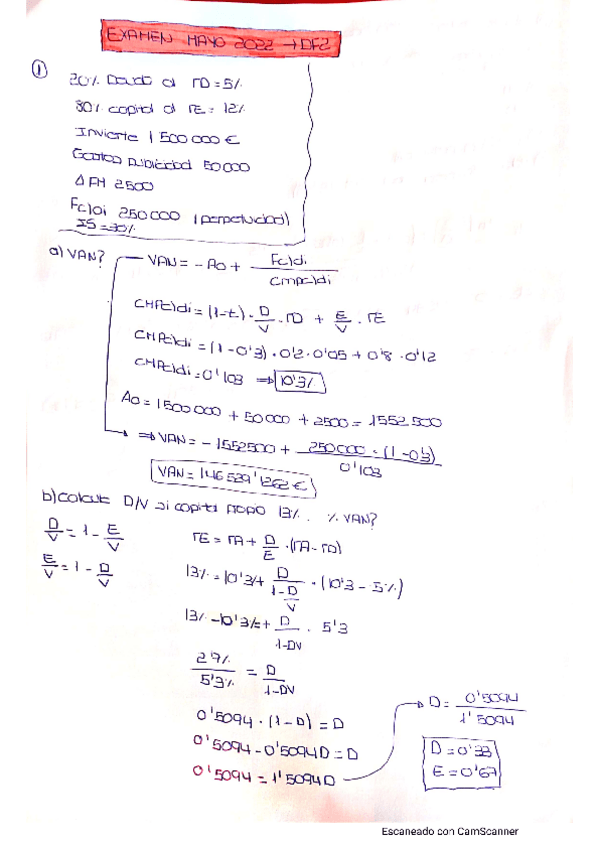 EXAMEN MAYO 2022 → DF2
①
20% Deuda al rD = 5%
80% capital al rE = 12%
Invierte 1 500 000 €
Gastos publicidad 50000
Δ FM 2500
Fc)di 250000 (perpetuidad)
IS = 30%
a) VAN? VAN = - A0 + Fc)di / CMPC)di
CMPC)di = (1-t) · D/V · rD + E/V · rE
CMPC)di = (1 - 0'3) · 0'2 · 0'05 + 0'8 · 0'12
CMPC)di = 0'103 ⇒ 10'3%
A0 = 1500000 + 50000 + 2500 = 1552500
⇒ VAN = - 1552500 + 250000 · (1 - 0'3) / 0'103
VAN = 146529'1262 €
b) calcule D/V si capital propio 13%. % VAN?
D/V = 1 - E/V
E/V = 1 - D/V
rE = rA + D/E · (rA - rD)
13% = 10'3% + D / 1-D/V · (10'3 - 5%)
13% - 10'3% = + D / 1-DV · 5'3
2'7% / 5'3% = D / 1-DV
0'5094 · (1 - D) = D
0'5094 - 0'5094D = D
0'5094 = 1'5094D
→ D = 0'5094 / 1'5094
D = 0'33
E = 0'67
Escaneado con CamScanner